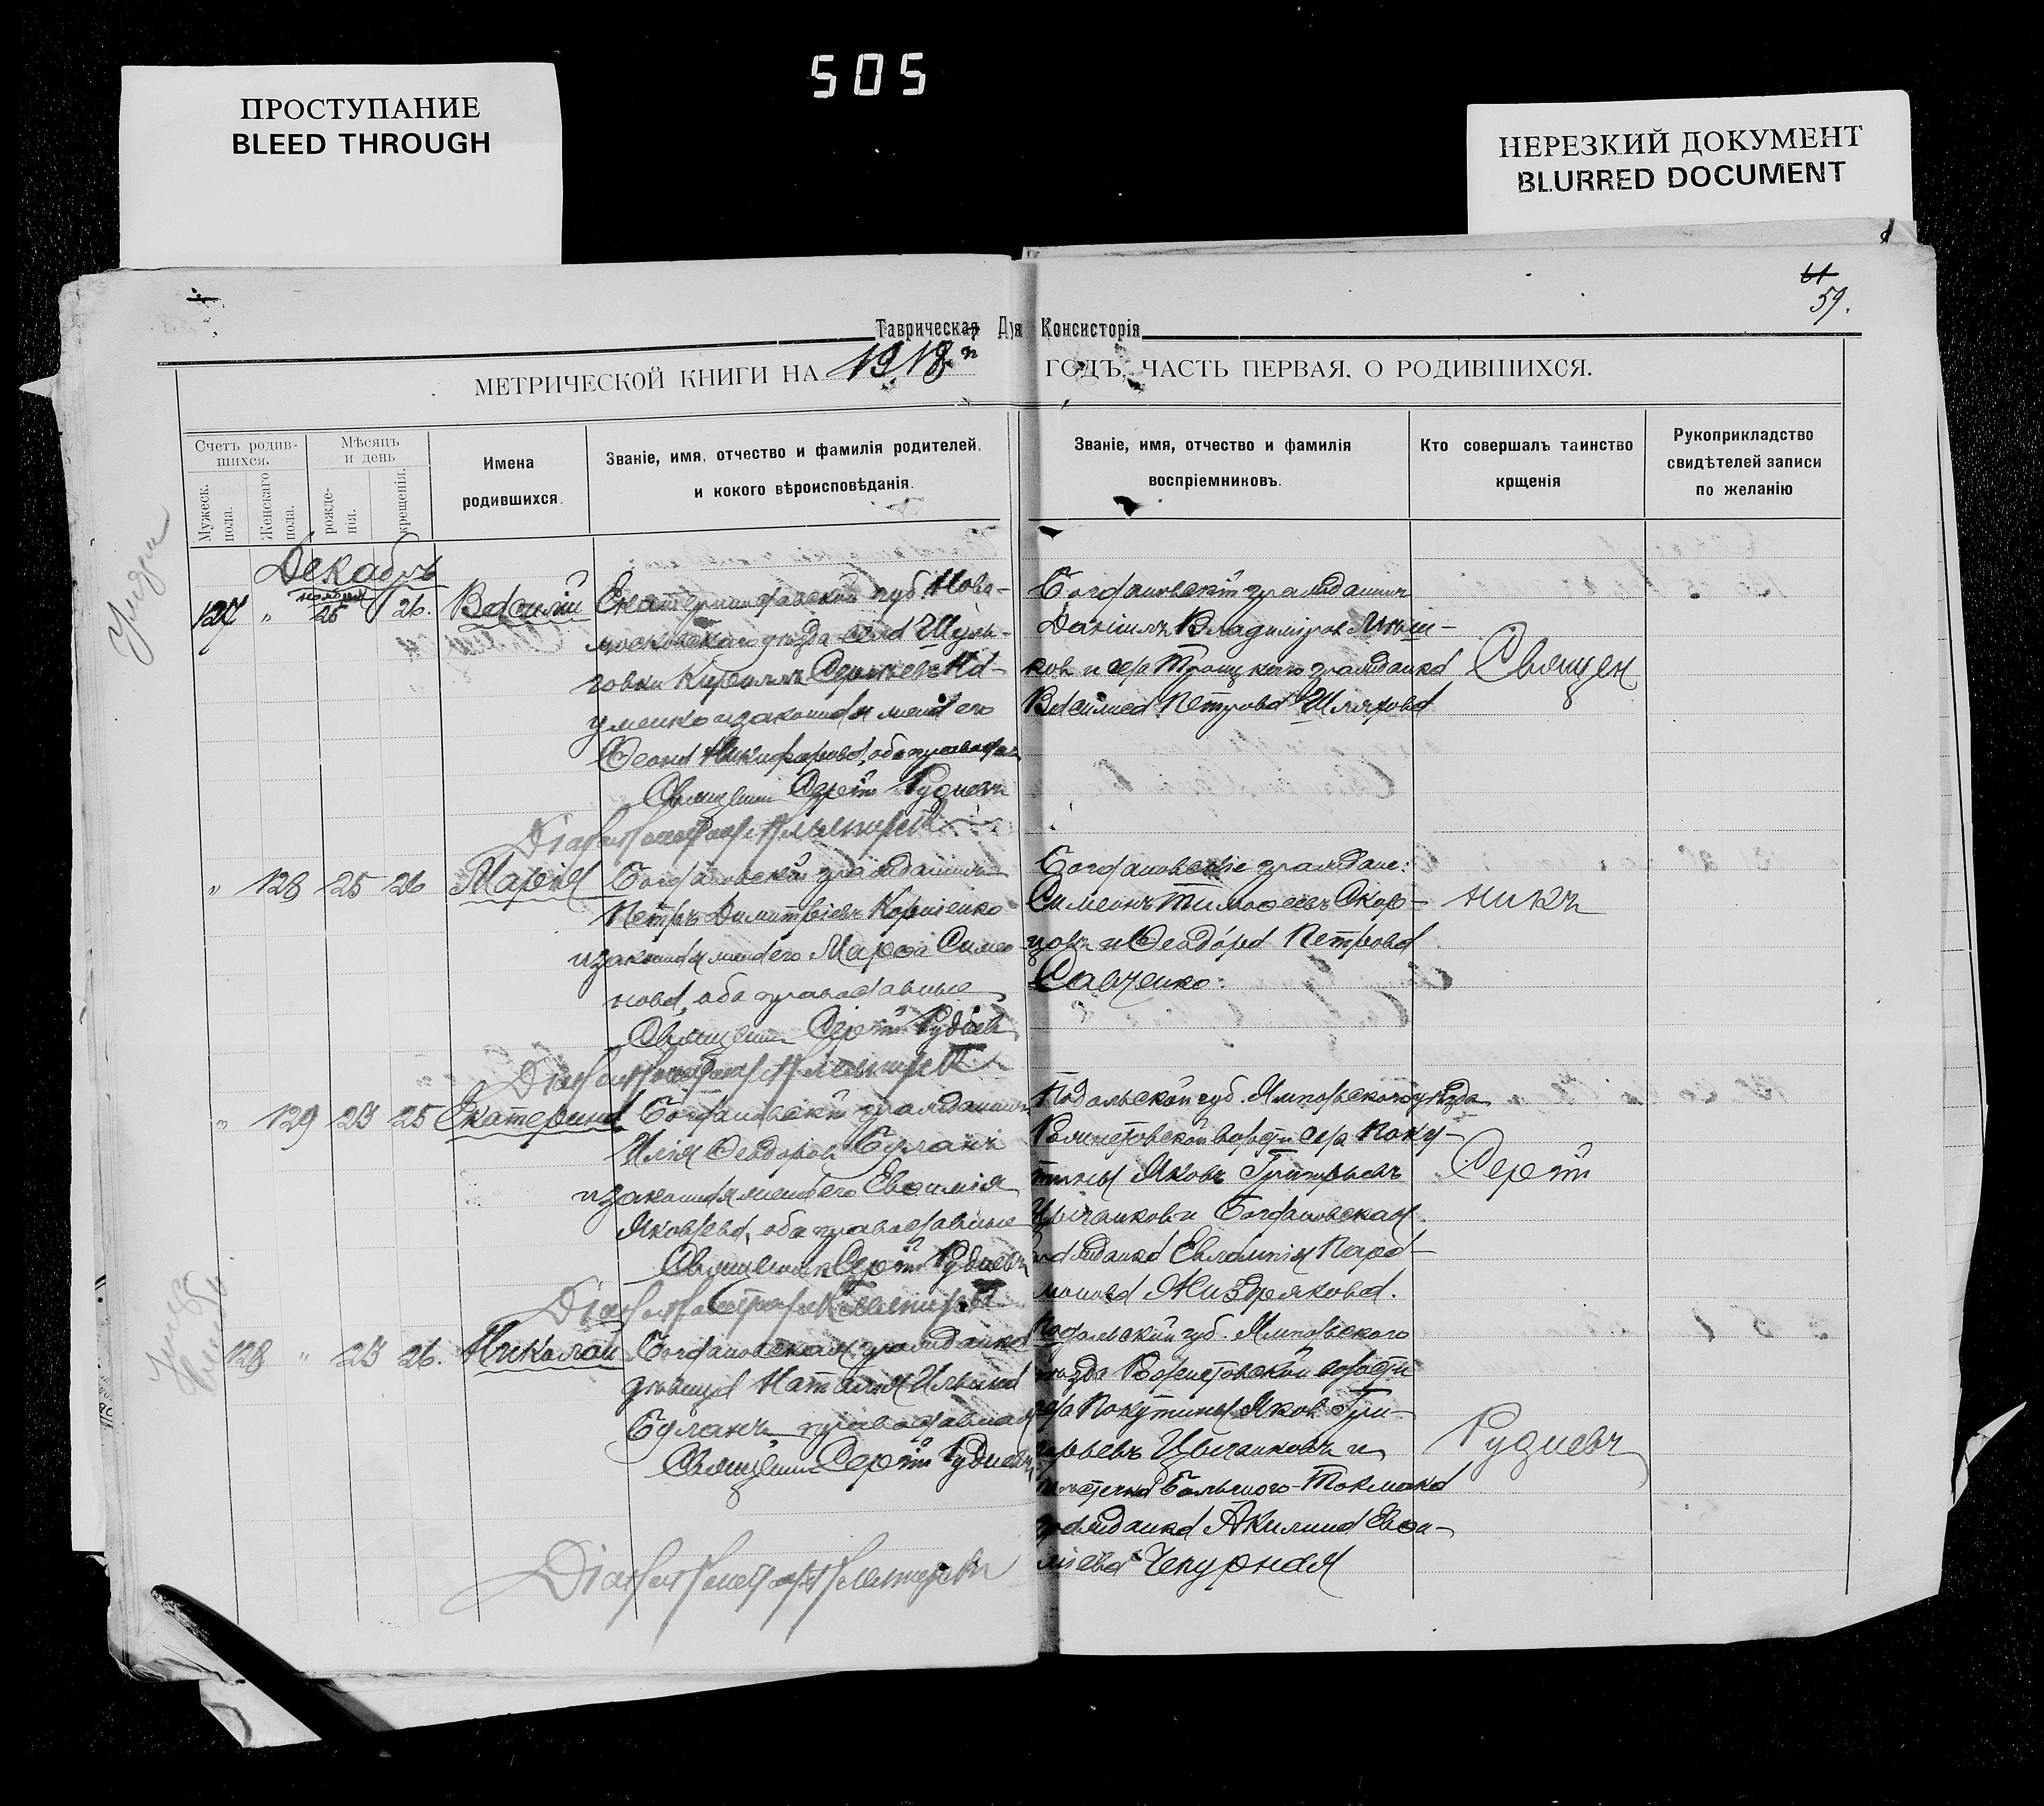 505
ПРОСТУПАНИЕ
BLEED THROUGH
НЕРЕЗКИЙ ДОКУМЕНТ
BLURRED DOCUMENT
59.
Таврическая Д Консисторія
МЕТРИЧЕСКОЙ КНИГИ НА 1918 ГОДЪ, ЧАСТЬ ПЕРВАЯ, О РОДИВШИХСЯ.
Счетъ родив-
шихся.
Мужеск.
пола.
Женскаго
пола.
Мѣсяцъ
и день
рожде-
нія.
крещенія.
Имена
родившихся.
Званіе, имя, отчество и фамилія родителей,
и кокого вѣроисповѣданія.
Званіе, имя, отчество и фамилія
воспріемниковъ.
Кто совершалъ таинство
крщенія
Рукоприкладство
свидѣтелей записи
по желанію
Декабрь
127 " 25 26. Василій
Екатеринославской губ. Ново-
московскаго уѣзда села Шуль-
говки Кириллъ Сергѣевъ На-
уменко и законная жена его
Никифорова, оба православн
Священн Сергій Рудневъ
Богдановскій гражданинъ
Даніилъ Владиміров Мѣш-
ков и села Троицкаго гражданка
Василиса Петрова Шляхова
" 128 25 26 Марія
Богдановскій гражданинъ
Петръ Димитріевъ Корніенко
и законная жена его Марѳа Симео-
нова, оба православные
Священн Сергій Руднев
Богдановскіе граждане:
Симеонъ Тимоѳеевъ Сквор-
цовъ и Ѳеодора Петрова
Савченко.
" 129 23 25 Екатерина
Богдановскій гражданинъ
Илія Ѳеодоров Буланъ
и законная жена его Евѳимія
Яковлева, оба православные
Священник Сергій Рудневъ
Подольской губ. Ямпольскаго уѣзда
волости села Поку-
тины Яковъ Григорьевъ
Цыганков и Богдановская
гражданка Евлампія Пара-
монова Низдрякова.
128 " 23 26. Николай
Богдановская гражданка
дѣвица Наталія Ильина
Буланъ, православная
Священн Сергій Рудневъ
Подольской губ. Ямпольскаго
уѣзда волости
села Покутины Яков Гри-
горьевъ Цыганковъ и
мѣстечка Большого-Токмака
гражданка Акилина Евѳи-
міева Чепурная
Священ
никъ
Сергій
Рудневъ